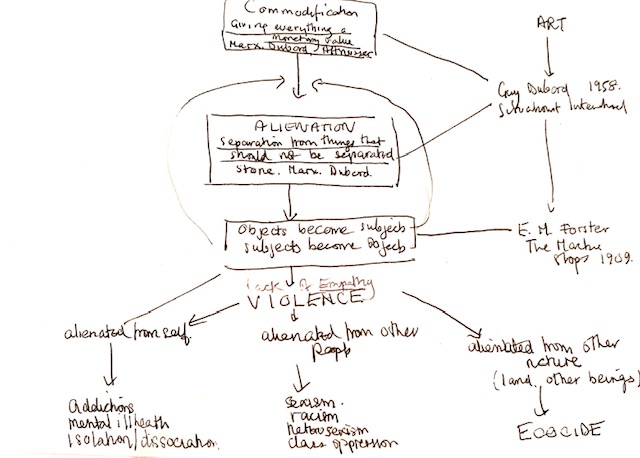 Commodification
Giving everything a
monetary value
Marx. Dubord, Althusser
ART
Guy Dubord 1958.
Situationist
ALIENATION
Separation from things that
should not be separated
Stone. Marx. Dubord.
Objects become subjects
subjects become Objects
E. M. Forster
The Machine
Stops 1909.
Lack of Empathy
VIOLENCE
alienated from self.
alienated from other
people
alienated from other
nature
(land, other beings)
addictions
mental ill health
isolation/dissociation.
sexism.
racism
heterosexism
class oppression
ECOCIDE